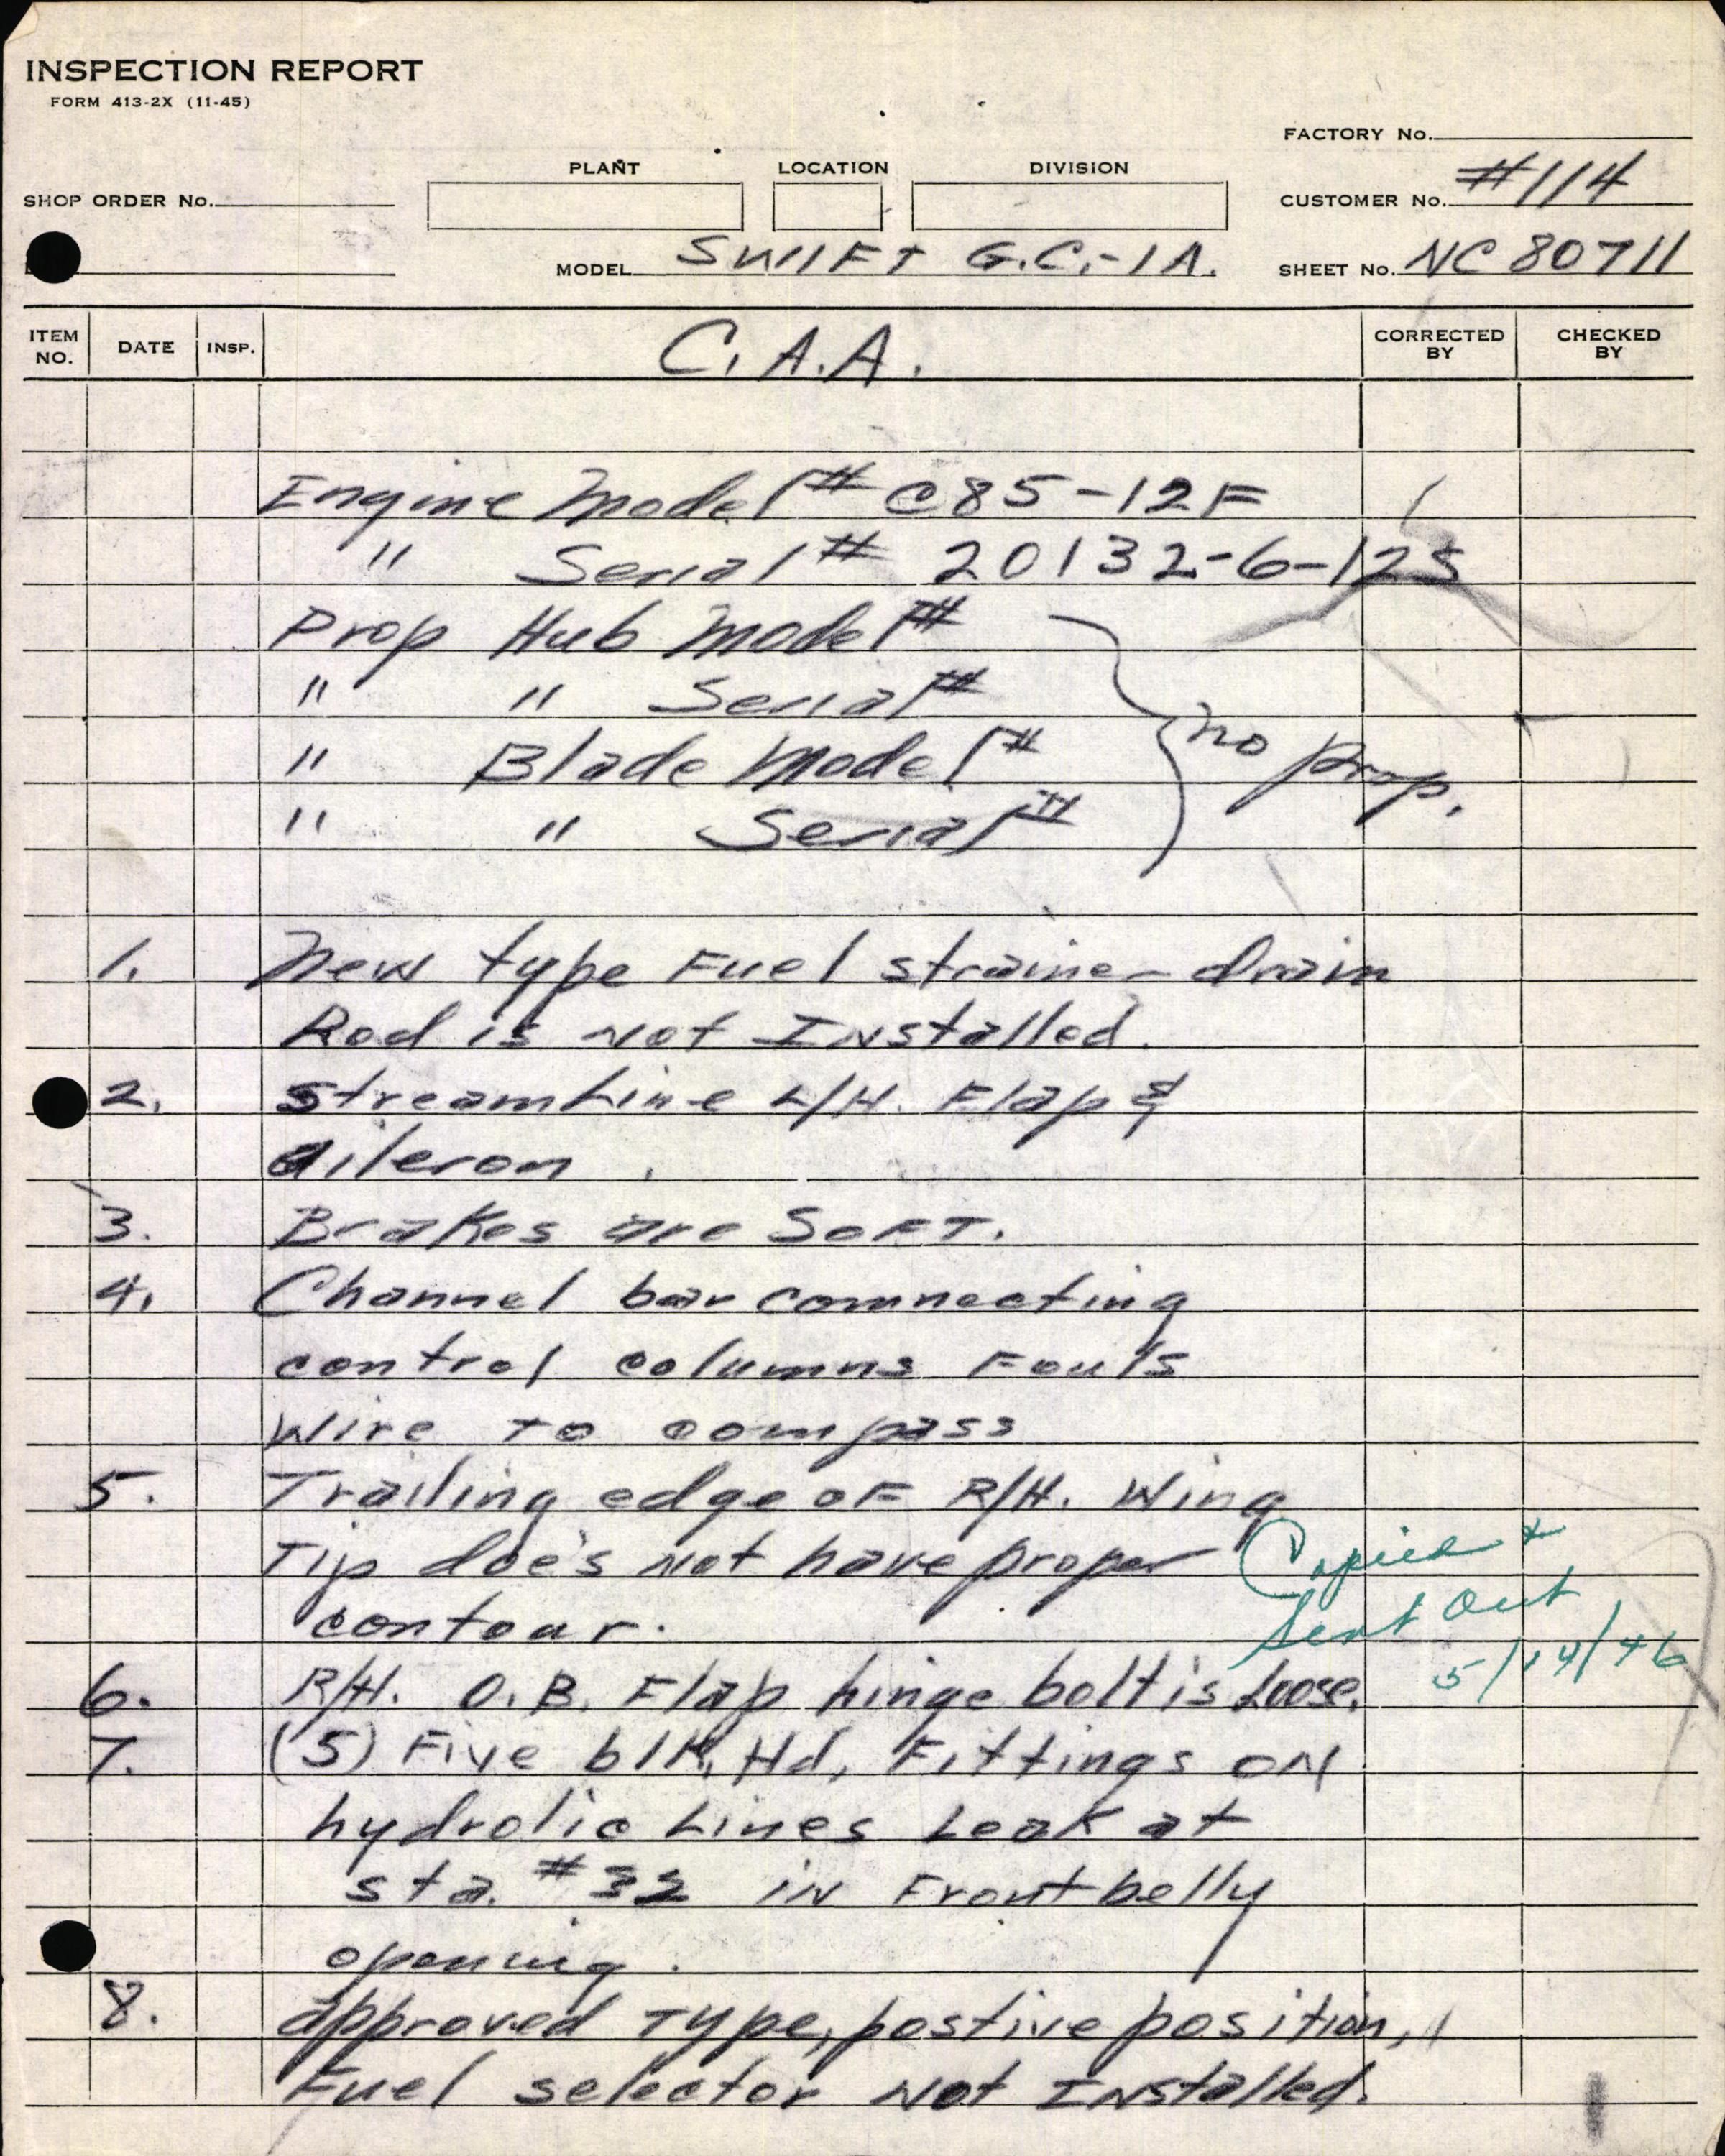 INSPECTION REPORT
FORM 413-2X (11-45)
FACTORY No.
PLANT LOCATION DIVISION
SHOP ORDER No. CUSTOMER No. #114
MODEL SWIFT G.C.-1A. SHEET No. NC 80711
ITEM NO. DATE INSP. C.A.A. CORRECTED BY CHECKED BY
Engine Model # C85-12F
" Serial # 20132-6-12S
Prop Hub Model #
" " Serial #
" Blade Model # no prop.
" " Serial #
1. New type Fuel strainer drain
Rod is not Installed.
2. streamLine L/H. Flap &
aileron.
3. Brakes are SOFT.
4. Channel bar comnecting
control columns Fouls
Wire to compass
5. Trailing edge of R/H. Wing
Tip doe's not have proper
contour.
Copied &
Sent Out
5/14/46
6. R/H. O.B. Flap hinge bolt is Loose.
7. (5) Five blk, Hd, Fittings ON
hydrolic Lines Leak at
sta. #32 IN Front belly
opening.
8. approved TYpe, postive position,
Fuel selector Not INstalled.